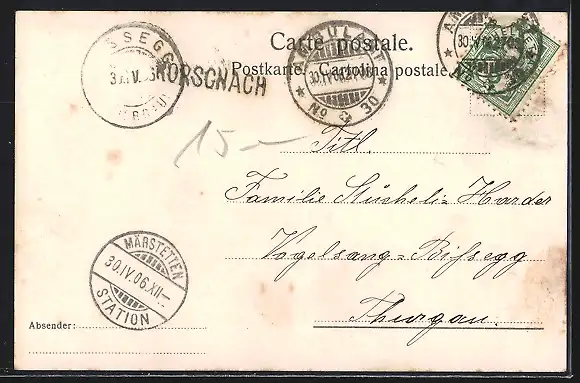 Carte postale.
Postkarte. Cartolina postale.
RORSCHACH
AMBULANT
30.IV.06
No 30
15.-
Titl.
Familie Stücheli-Harder
Vogelsang-Bissegg
Thurgau.
MÄRSTETTEN
30.IV.06.XII-
STATION
Absender: